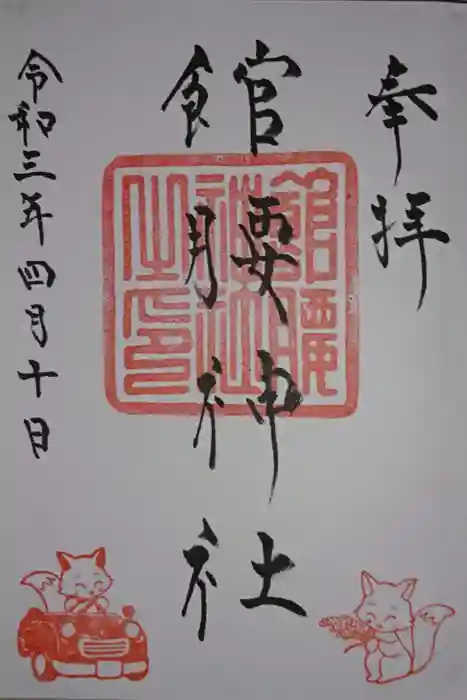 奉拝
館腰神社
館腰神社之印
令和三年四月十日